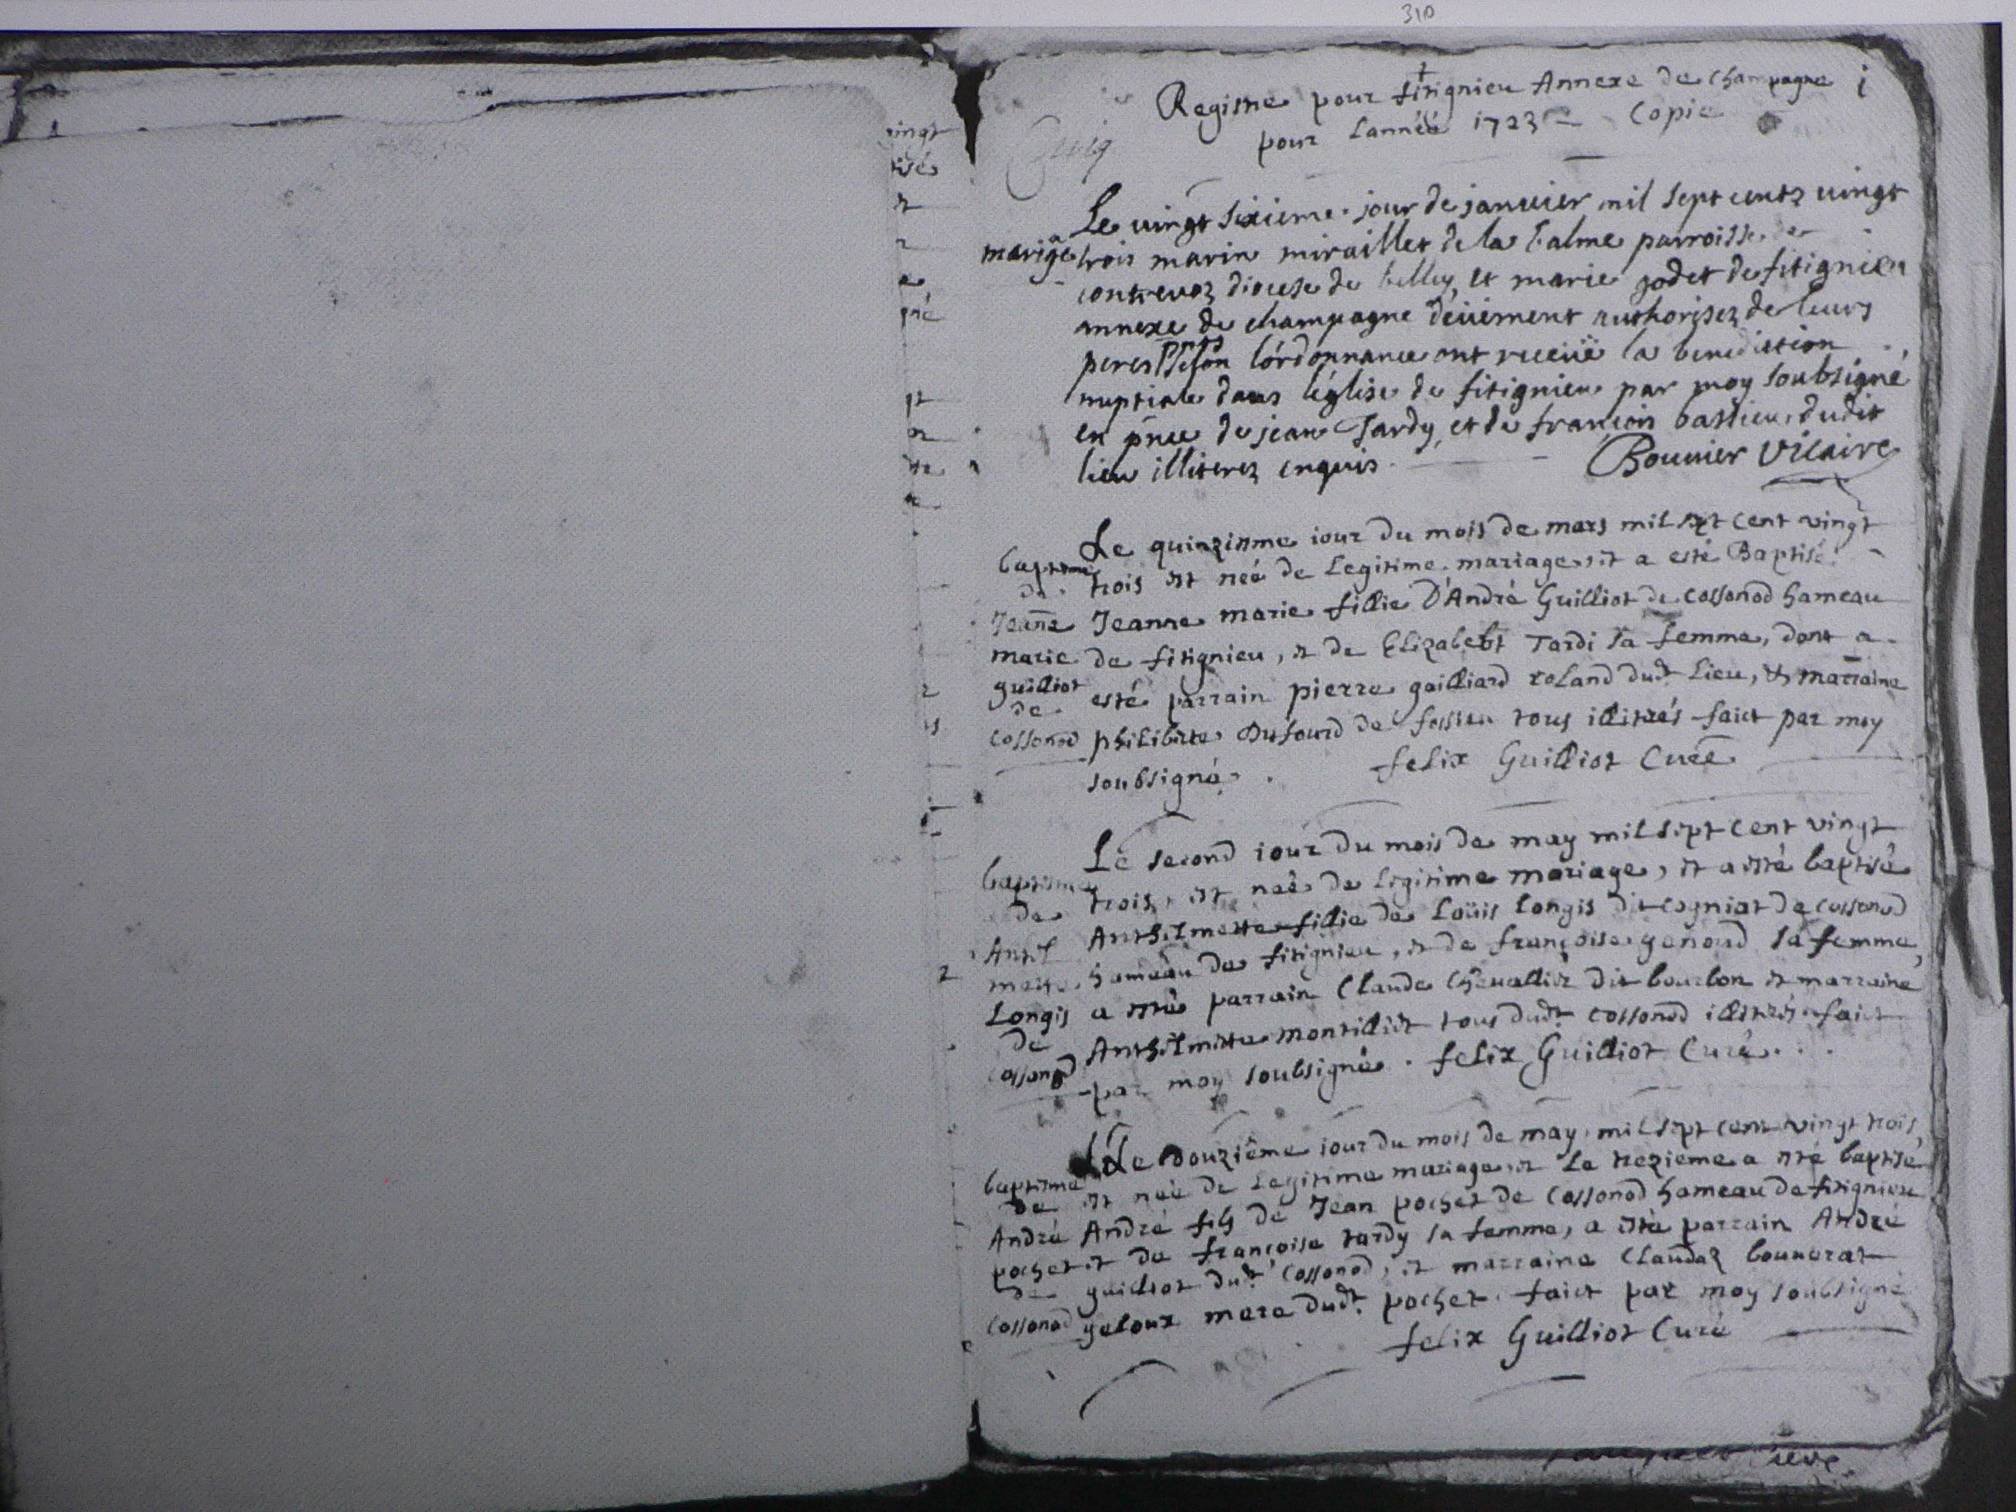 310
Registre pour fitignieu Annexe de Champagne i
pour Lannéé 1723 – Copie
Le vingt sixieme jour de janvier mil sept cents vingt
mariage trois marin miraillet de la balme parroisse de
contrevoz diocese de belley, et marie godet de fitignieu
annexe de champagne deüement authorisez de leurs
peres selon l'ordonnance ont receüe la benediction
nuptiale dans l'église de fitignieu par moy soubsigné
en pñce de jean Tardy, et de françois bastien, dudit
lieu illiterez enquis. Bouvier Vicaire
Le quinzieme iour du mois de mars mil sept cent vingt
baptesme trois est neé de Legitime mariage et a esté Baptisé
de
Jeañe Jeanne marie fillie D'André Guilliot de Cossonod hameau
marie de fitignieu, et de Elizabebt Tardi sa femme, dont a
guilliot
de esté parrain pierre gailliard roland dudt Lieu, & marraine
Cossonod philiberte Dufourd de fossieu tous illitrés faict par moy
soubsigné. felix Guilliot Curé
Le second iour du mois de may mil sept cent vingt
baptesme trois, est neé de Legitime mariage, et a esté baptisé
de
Antil Anthilmette fillie de Loüis Longis dit cogniat de cossonod
mette hameau de fitignieu, et de françoise genoud sa femme,
Longis a esté parrain Claude Chevallier dit bourbon et marraine
de Anthilmette montilliet tous dudt. cossonod illitrés faict
Cossonod par moy soubsigné. felix Guilliot Curé...
Le douziême iour du mois de may mil sept cent vingt trois,
baptesme
de est neé de Legitime mariage et Le trezieme a esté baptisé
André André fils de Jean pochet de Cossonod hameau de fitignieu
pochet et de françoise tardy sa femme, a esté parrain André
de guilliot dudt. Cossonod, et marraine Claudaz bouverat
Cossonod geloux mere dudt. pochet. faict par moy soubsigné
felix Guilliot Curé